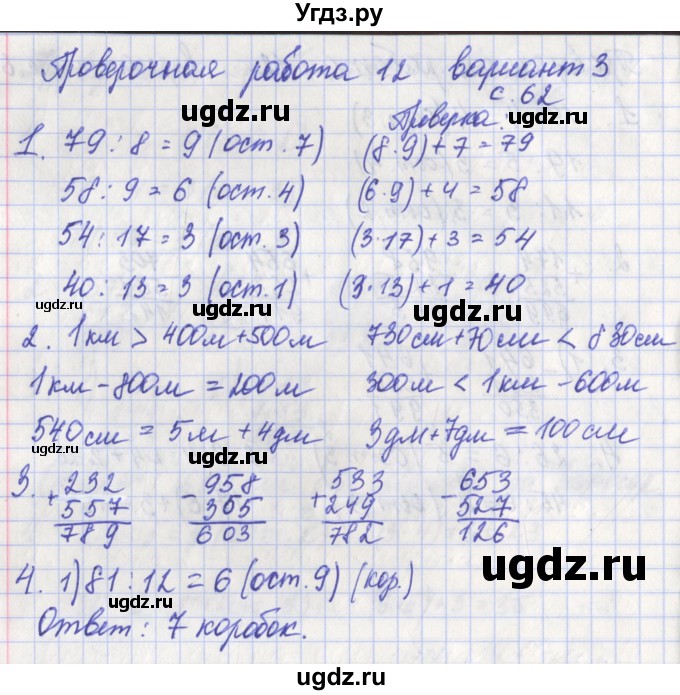 Угдз.ру
Проверочная работа 12 вариант 3
с. 62
ugdz.ru
Проверка:
1. 79 : 8 = 9 (ост. 7) (8·9) + 7 = 79
ugdz.ru
58 : 9 = 6 (ост. 4) (6·9) + 4 = 58
54 : 17 = 3 (ост. 3) (3·17) + 3 = 54
40 : 13 = 3 (ост. 1) (3·13) + 1 = 40
ugdz.ru ugdz.ru ugdz.ru
2. 1 км > 400м + 500м 730см + 70см < 830см
ugdz.ru
1 км - 800м = 200м 300м < 1 км - 600м
540 см = 5 м + 4 дм 3дм + 7дм = 100см
ugdz.ru ugdz.ru
3. + 232 - 958 + 533 - 653
557 365 249 527
789 603 782 126
ugdz.ru
4. 1) 81 : 12 = 6 (ост. 9) (кор.)
ugdz.ru
Ответ: 7 коробок.
ugdz.ru ugdz.ru